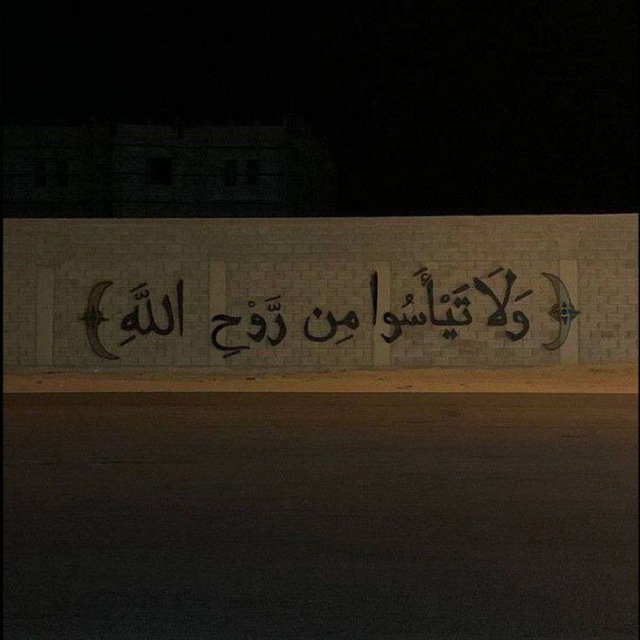 ﴿ وَلَا تَيْأَسُوا مِن رَّوْحِ اللَّهِ ﴾